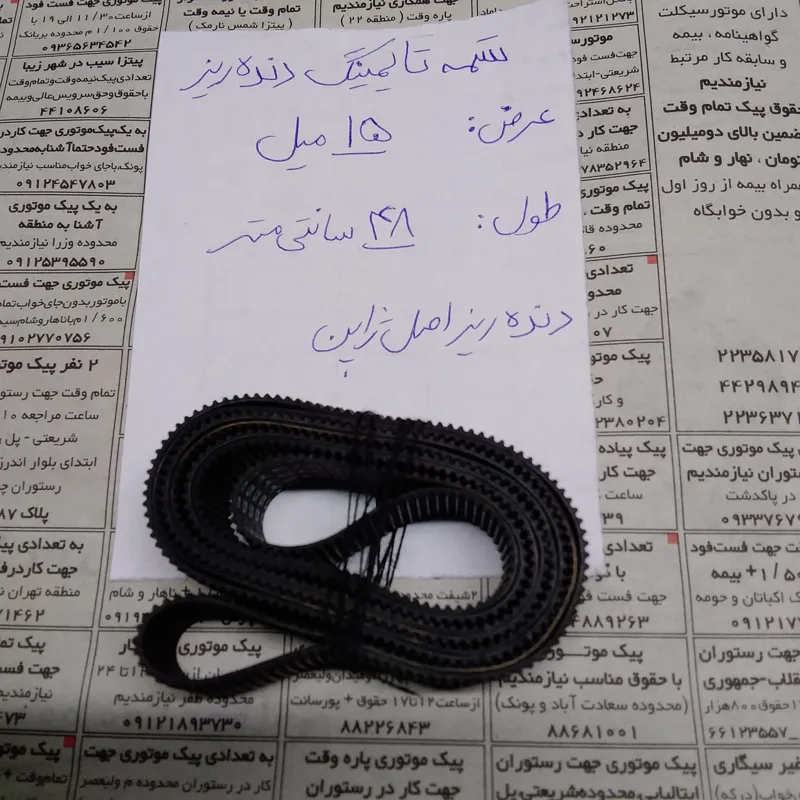 تسمه تایمینگ دنده ریز
عرض: ۱۵ میل
طول: ۴۸ سانتی متر
دنده ریز اصل ژاپن
تمام وقت یا نیمه وقت
پاره وقت ( منطقه ۲۲ )
( پیتزا شمس نارمک )
ازساعت ۱۱/۳۰ الی ۱۹ با
۰۹۳۶۵۶۳۴۵۴۲
پیتزا سیب در شهر زیبا
تعدادی پیک نیمه وقت و تمام وقت
باحقوق وحق سرویس عالی وبیمه
۴۴۱۰۸۶۰۶
به یک پیک موتوری جهت کاردر
فست فود حتما آشنا به محدوده
پونک،باجای خواب مناسب نیازمندیم
۰۹۱۲۴۵۴۷۸۰۳
به یک پیک موتوری
آشنا به منطقه
محدوده وزرا نیازمندیم
۰۹۱۲۵۳۹۵۵۹۰
پیک موتوری جهت فست
باموتور بدون جای خواب تمام
۹۱۰۲۷۷۰۷۵۶
۲ نفر پیک موتوری
تمام وقت جهت رستوران
ساعت مراجعه ۱۰
شریعتی - پل
ابتدای بلوار اندرز
رستوران
پلاک ۸۷
به تعدادی پیک
جهت کاردرف
منطقه تهران
۷۱۴۶۲
دارای موتورسیکلت
گواهینامه ، بیمه
و سابقه کار مرتبط
نیازمندیم
حقوق پیک تمام وقت
تضمین بالای دومیلیون
تومان ، نهار و شام
همراه بیمه از روز اول
و بدون خوابگاه
۹۲۱۲۱۲۷۳
۹۲۴۶۸۶۲۴
به تعدادی
جهت کار د
۷۸۳۵۲۹۶۴
پیک موتوری
تمام وقت ،
۶۰
تعدادی
محدو
جهت کار در
۰۷
پیک موتو
و کار
۲۳۸۰۲۰۴
پیک پیاده
جهت کار
ساعت
۳۹
۲۲۳۵۸۱۷
۴۴۲۹۸۹۴
۲۲۶۳۷۱
پیک موتوری جهت
رستوران نیازمندیم
در پاکدشت
۰۹۳۳۷۶۷۹
جهت فست فود
۱/۵۰۰ + بیمه
اکباتان و حومه
۰۹۱۲۱۷
تعدادی
جهت فست فود
۴۸۸۹۲۶۳
پیک موتوری
با حقوق مناسب نیازمندیم
(محدوده سعادت آباد و پونک)
۸۸۶۸۱۰۰۱
جهت رستوران
انقلاب-جمهوری
۶۶۱۲۳۵۵۷
محدوده ظفر نیازمندیم
۰۹۱۲۱۸۹۳۷۳۰
ازساعت ۱۲تا۱۷ حقوق + پورسانت
۸۸۲۲۶۸۴۳
به تعدادی پیک موتوری جهت
کار در رستوران محدوده م ولیعصر
پیک موتوری پاره وقت
جهت کار در رستوران
پیک موتوری جهت رستوران
ایتالیایی،محدوده شریعتی،پل
غیر سیگاری